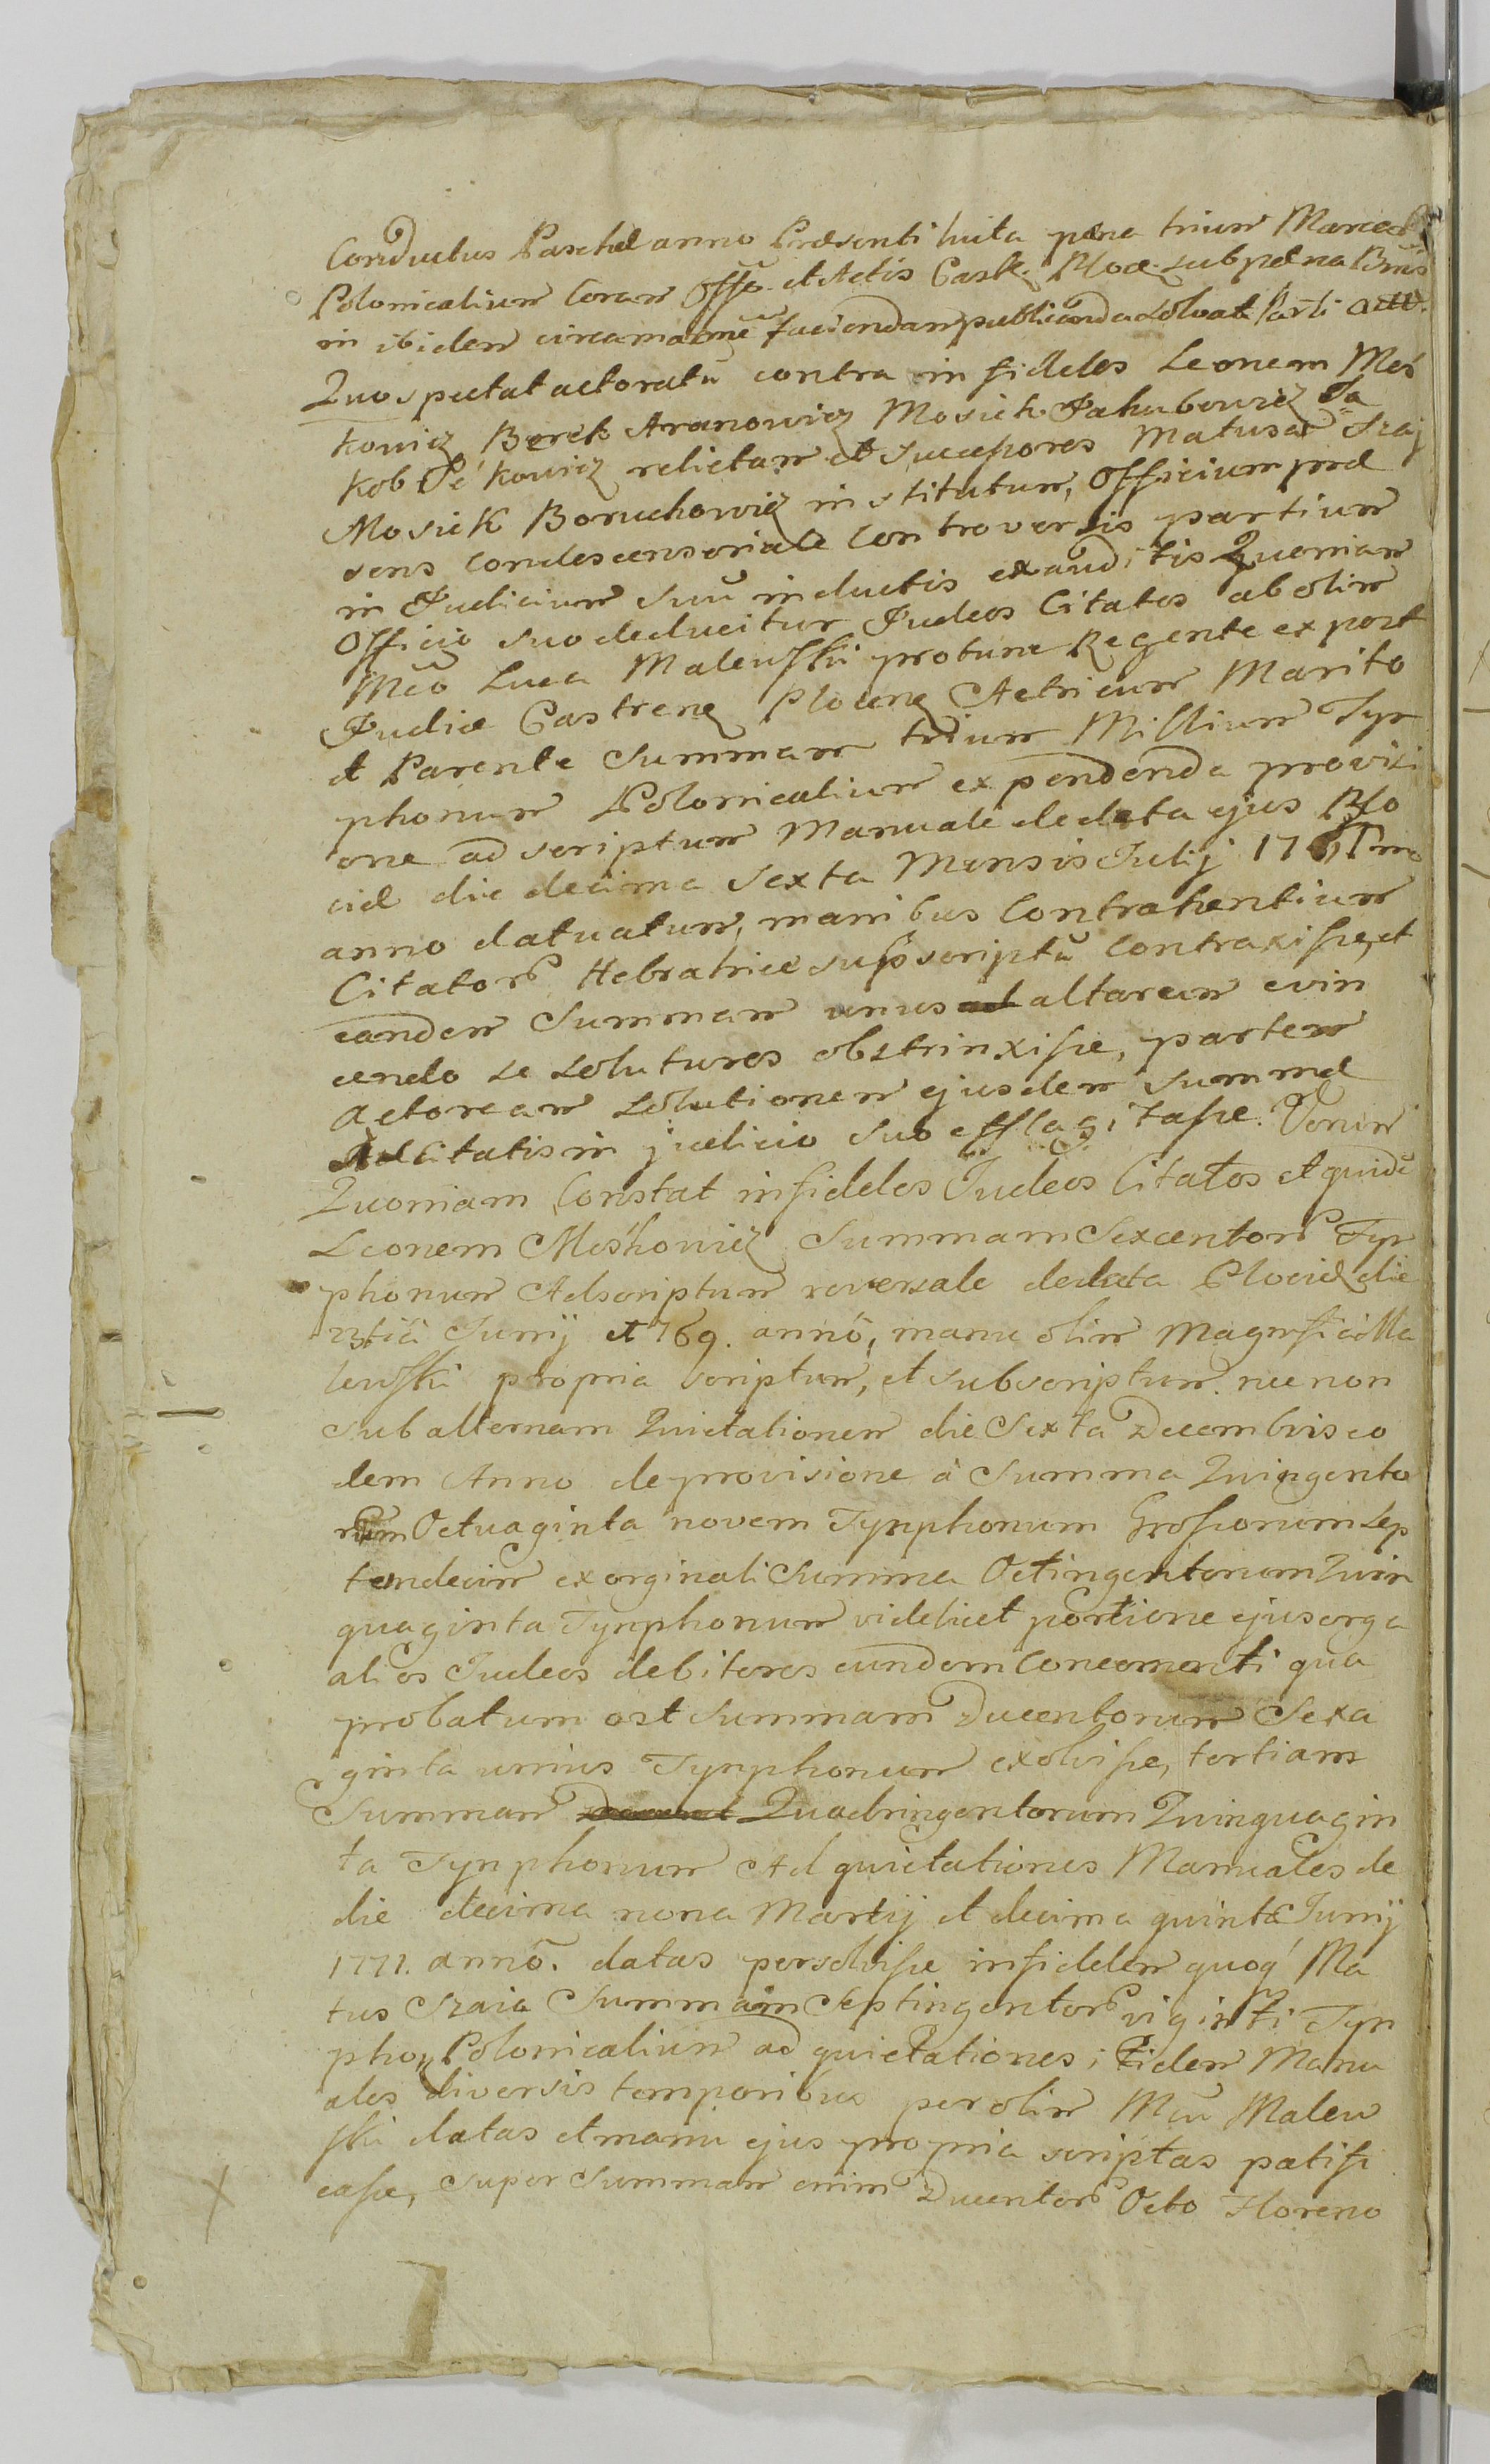 Conductus Paschae anno Praesenti luita paena trium Marcar
Polonicalium Coram Offo. et Actis Cast. Ploc. sub paena Bnis
in ibidem circa manē faciendam publicanda solvat Parti actō.
Quo spectat actoratū contra infideles Leonem Meś
kowicz Berek Aranowicz Mosiek Jakubowicz Ja
kob Jćkowicz relictam et successores Matusae Szaj
Mosiek Boruchowicz institutum, Officium prae
sens condescensoriale Controversis partium
in Judicium suū inductis exauditis Quoniam
Officio suo deducitur Judeos Citatos ab olim
Mco Luca Malewski protunc Regente ex post
Judice Castrenz Plocenz Actricum Marito
et Parente Summam trium Millium Tyn
phonum Polonicalium expendenda provisi
one ad scriptum Manuale de data ejus Plo
ciae die decima sexta Mensis Julij 17
anno datuatum, manibus Contrahentium
Citator Hebraice supscriptū contraxisse, et
eandem Summam unus altarum evin
cendo se soluturos obstrinxisse, partem
Actoream solutionem ejusdem summae
Citatis in judicio suo efflagitasse. Verum
Quoniam Constat infideles Judeos Citatos et quidē
Leonem Meśkowicz Summam Sexcentor Tyn
phonum Ad scriptum reversale de data Plociae die
23tia Junij et 769. annō, manu olim Magnifici Ma
lewski propria scriptum, et subscriptum. nec non
sub alternam Quietationem die Sexta Decembris eo
dem Anno de provisione à Summa Quingento
rum Octuaginta novem Tynphonum Grossorum Sep
temdecim ex orginali Summa Octingentorum Quin
quaginta Tynphonum videlicet portione ejus erga
alios Judeos debitores eundem concernenti qua
probatum est Summam Ducentorum Sexa
ginta unius Tynphonum exolvisse, tertiam
Summam Quadringentorum Quinquagin
ta Tynphonum Ad quietationes Manuales de
die decima nona Martij et decima quinta Junij
1771. annō. datas persolvisse infidelem quoq́ Ma
tus Szaia Summam Septingentor viginti Tyn
phon Polonicalium ad quietationes itidem Manu
ales diversis temporibus per olim Mcū Malew
ski datas et manu ejus propria scriptas patisfi
casse, super Summam enim Ducentor Octo Floreno